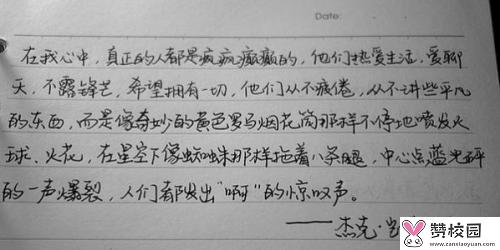 Date:
在我心中，真正的人都是疯疯癫癫的，他们热爱生活，爱聊
天，不露锋芒，希望拥有一切，他们从不疲倦，从不讲些平凡
的东西，而是像奇妙的黄色罗马烟花筒那样不停地喷发火
球、火花，在星空下像蜘蛛那样拖着八条腿，中心点蓝光砰
的一声爆裂，人们都发出“啊”的惊叹声。
——杰克
赞校园
www.zanxiaoyuan.com